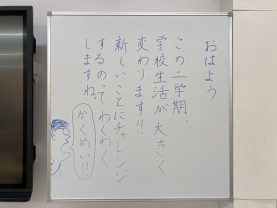 おはよう
この二学期、
学校生活が大きく
変わります!!
新しいことにチャレンジ
するのって わくわく
しますね。
かくめい!!